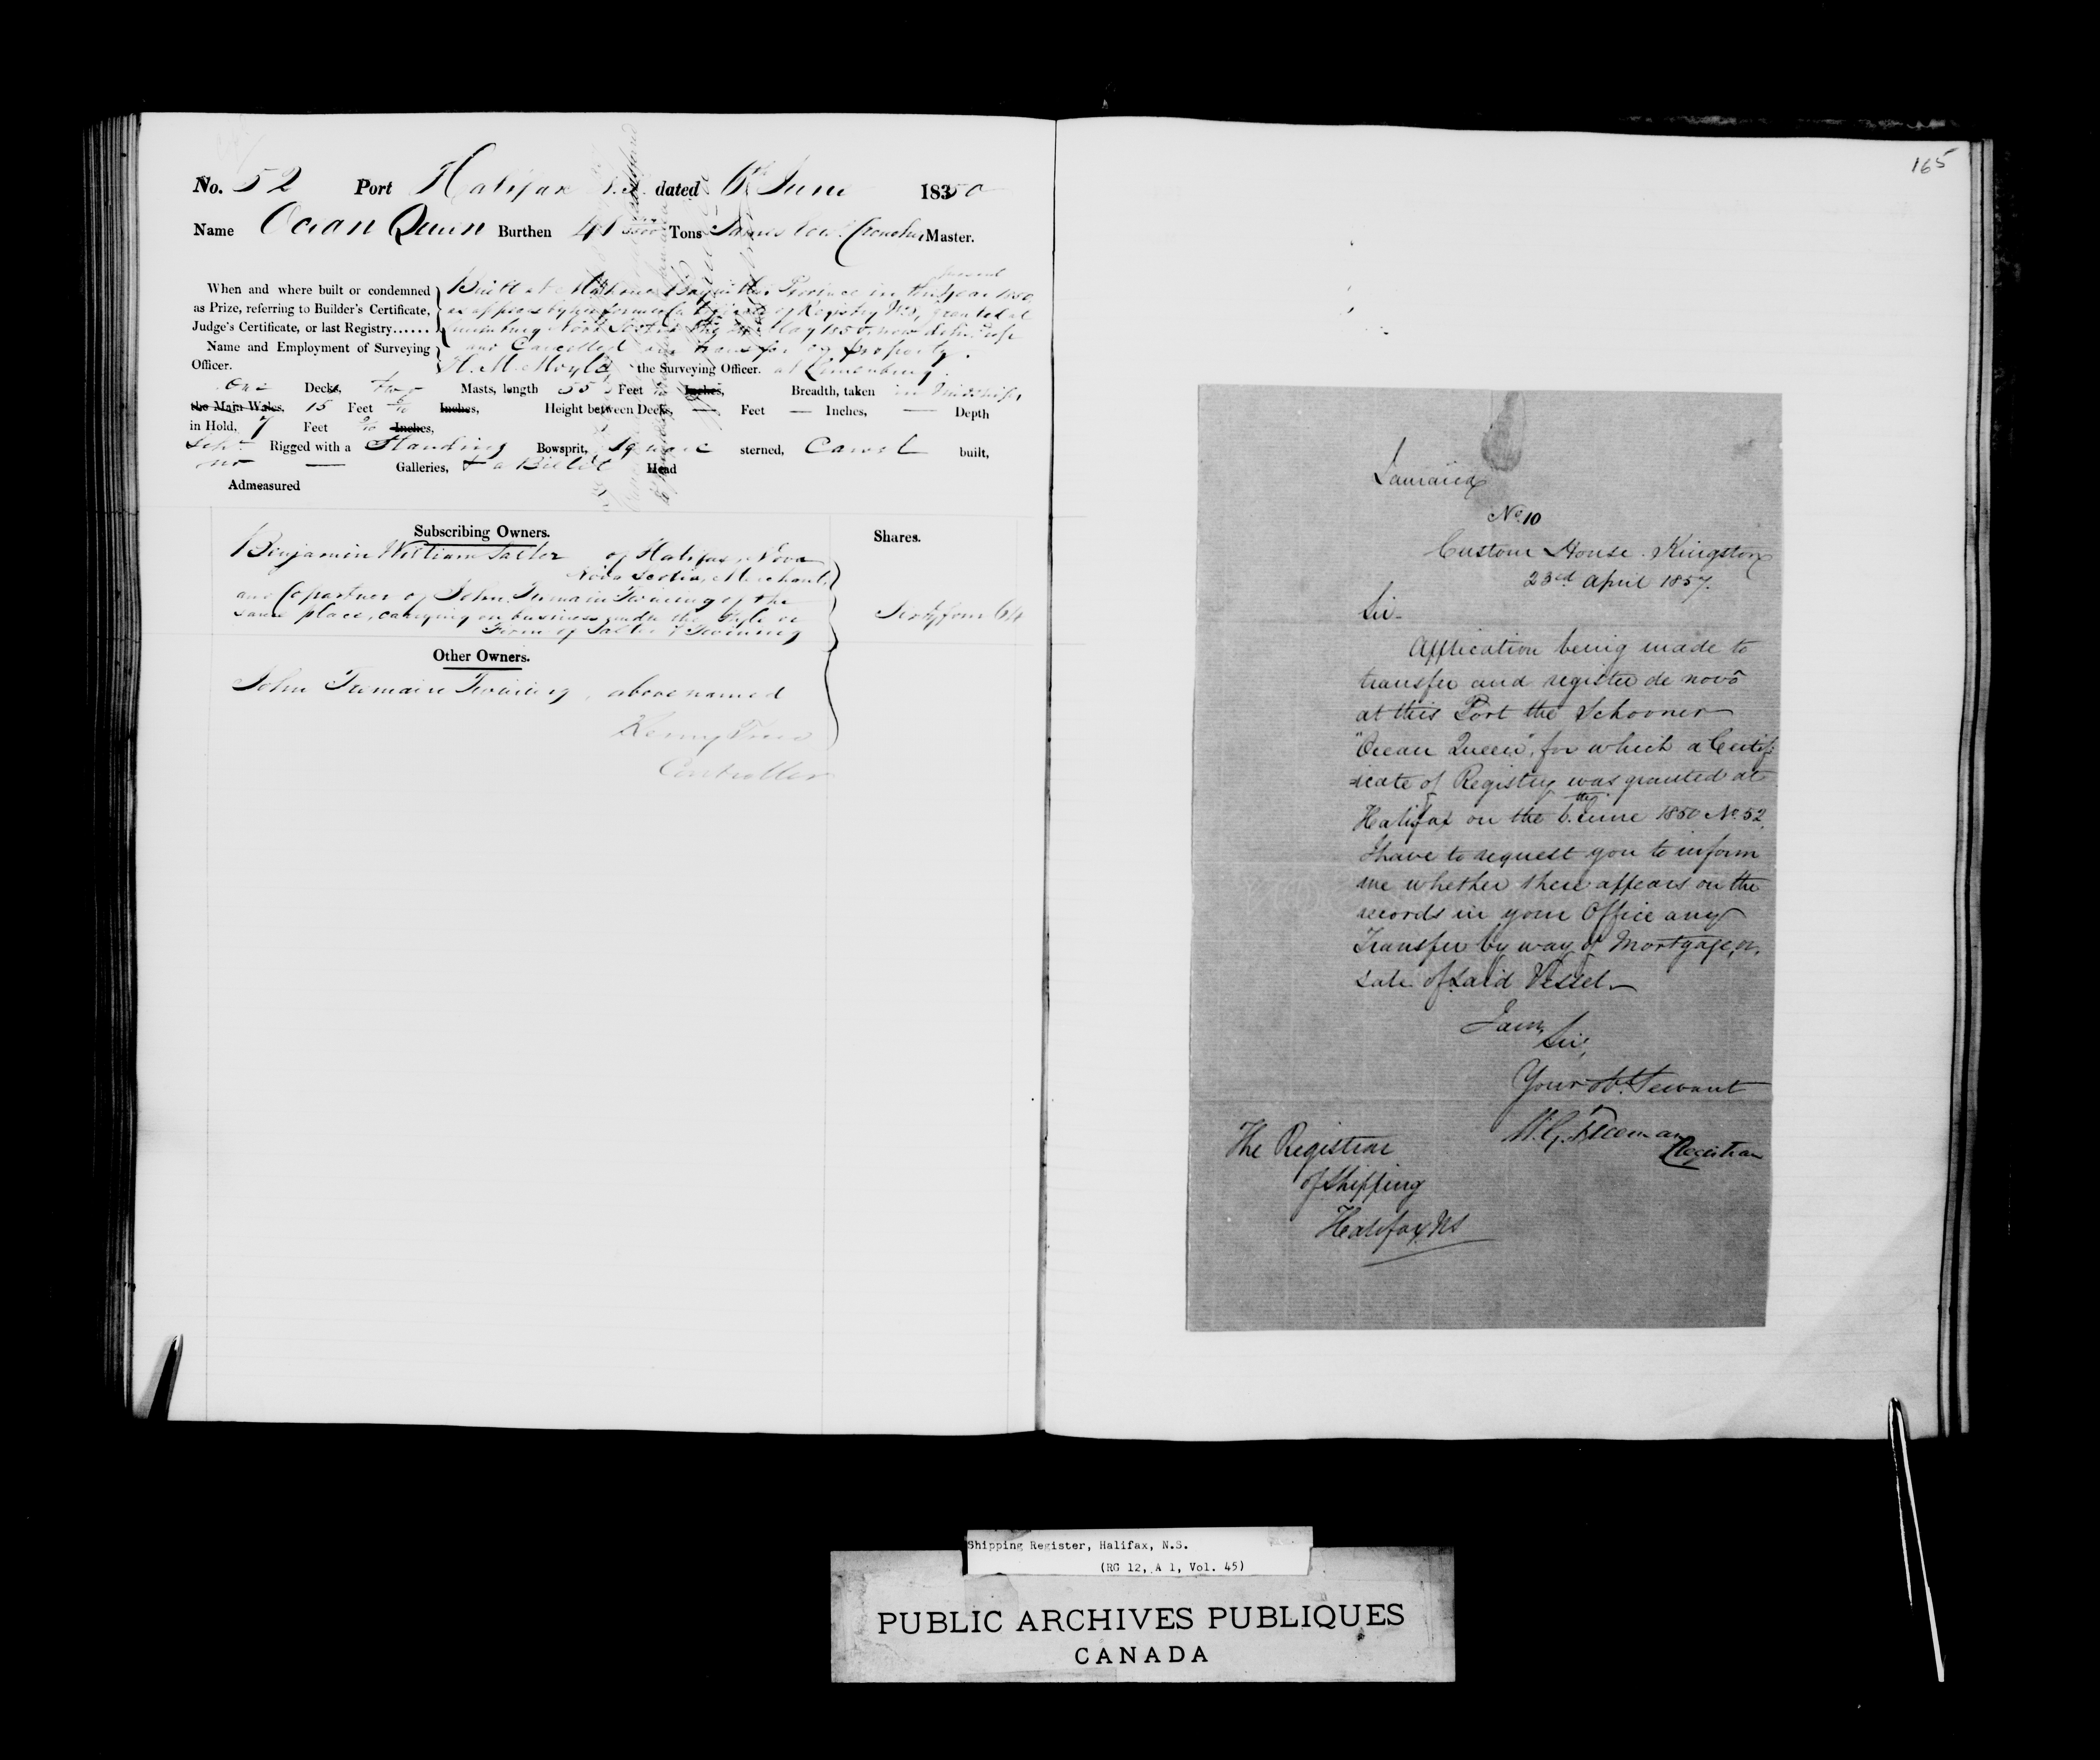 No. 52 Port Halifax N.S. dated 6th June 1850
Name Ocean Queen Burthen 41 Tons James Master.
When and where built or condemned
as Prize, referring to Builder's Certificate,
Judge's Certificate, or last Registry......
Built at Mahone Bay in this Province in the present year 1850,
as appears by former Certificate of Registry No. granted at
Lunenburg Nova Scotia May 1850 now delivd up
and Cancelled on transfer of property.
Name and Employment of Surveying
Officer.
H. M. Moyle the Surveying Officer. at Lunenburg.
One Decks, Two Masts, length 55 Feet Inches, Breadth, taken in Midships,
the Main Wales, 15 Feet Inches, Height between Decks, — Feet — Inches, — Depth
in Hold, 7 Feet Inches,
Schr Rigged with a Standing Bowsprit, Square sterned, Carvel built,
no — Galleries, & a Billet Head
Admeasured
Subscribing Owners.
Shares.
Benjamin William Salter of Halifax, Nova
Nova Scotia, Merchant,
and Copartner of John Tremain Twining of the
same place, carrying on business under the Style or
Firm of Salter & Twining
Sixty four 64
Other Owners.
John Tremain Twining, above named
Controller
165
Jamaica
No. 10
Custom House Kingston
23rd April 1857.
Sir
Application being made to
transfer and register de novo
at this Port the Schooner
"Ocean Queen", for which a Certif-
icate of Registry was granted at
Halifax on the 6th June 1850 No. 52
I have to request you to inform
me whether there appears on the
records in your Office any
Transfer by way of Mortgage, or
Sale of said Vessel.
I am,
Sir,
Your obt. Servant
W. G. Freeman
Registrar
The Registrar
of Shipping
Halifax NS
Shipping Register, Halifax, N.S.
(RG 12, A 1, Vol. 45)
PUBLIC ARCHIVES PUBLIQUES
CANADA